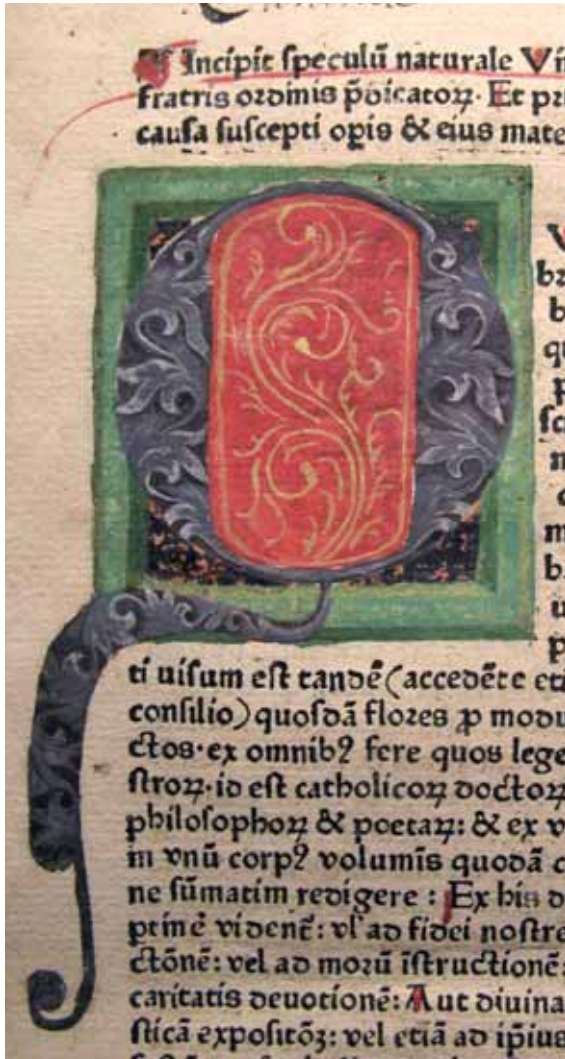 Incipit ſpeculū naturale Vin
fratris ordinis p̄dicatoꝝ. Et pr
cauſa ſuscepti oꝑis & eius mate
Q
V
br
b
qu
ſc
m
b
u
p
ti uiſum eſt tandē (accedēte eti
conſilio) quoſdā flores ꝓ modu
ctos. ex omnib⁹ fere quos lege
ſtroꝝ. id eſt catholicoꝝ doctoꝝ
philoſophoꝝ & poetaꝝ: & ex v
in vnū corp⁹ volumīs quodā c
ne ſūmatim redigere: Ex his d
ptinē videnē: vl' ad fidei noſtre
ctōnē: vel ad morū īſtructionē:
caritatis deuotionē: Aut diuina
ſticā expoſitōꝫ: vel etiā ad ip̄ius